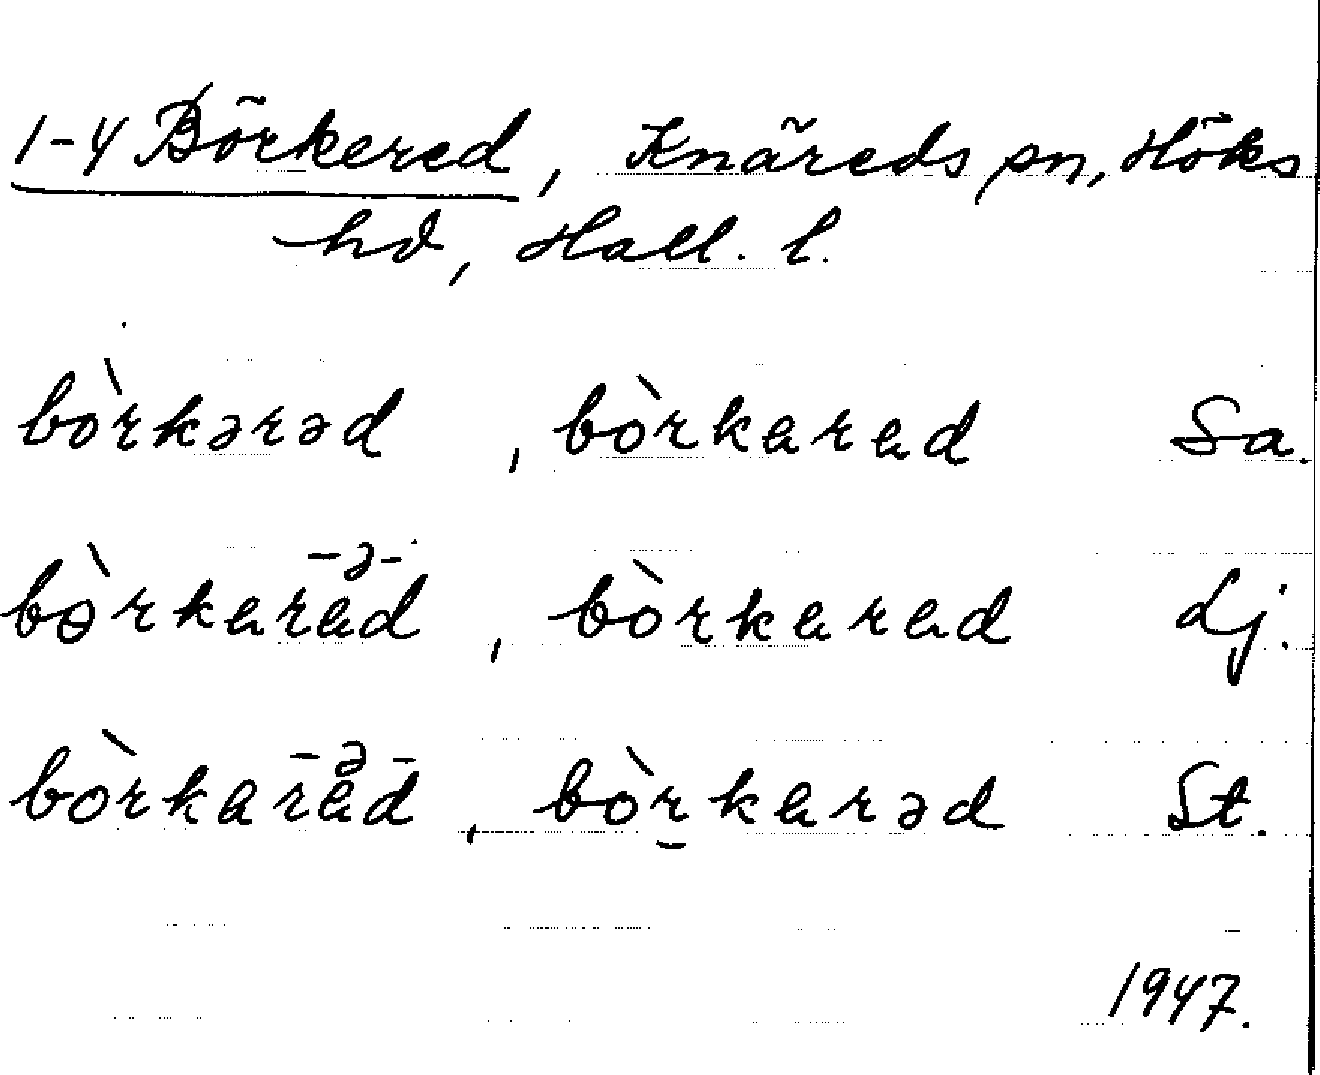 1-4 Börkered, Knäreds sn, Höks
hd, Hall. l.
bòrkərəd, bòrkarad Sa.
bòrkarad -ə-, bòrkarad Lj.
bòrkarad -ə-, bòrkarəd St.
1947.